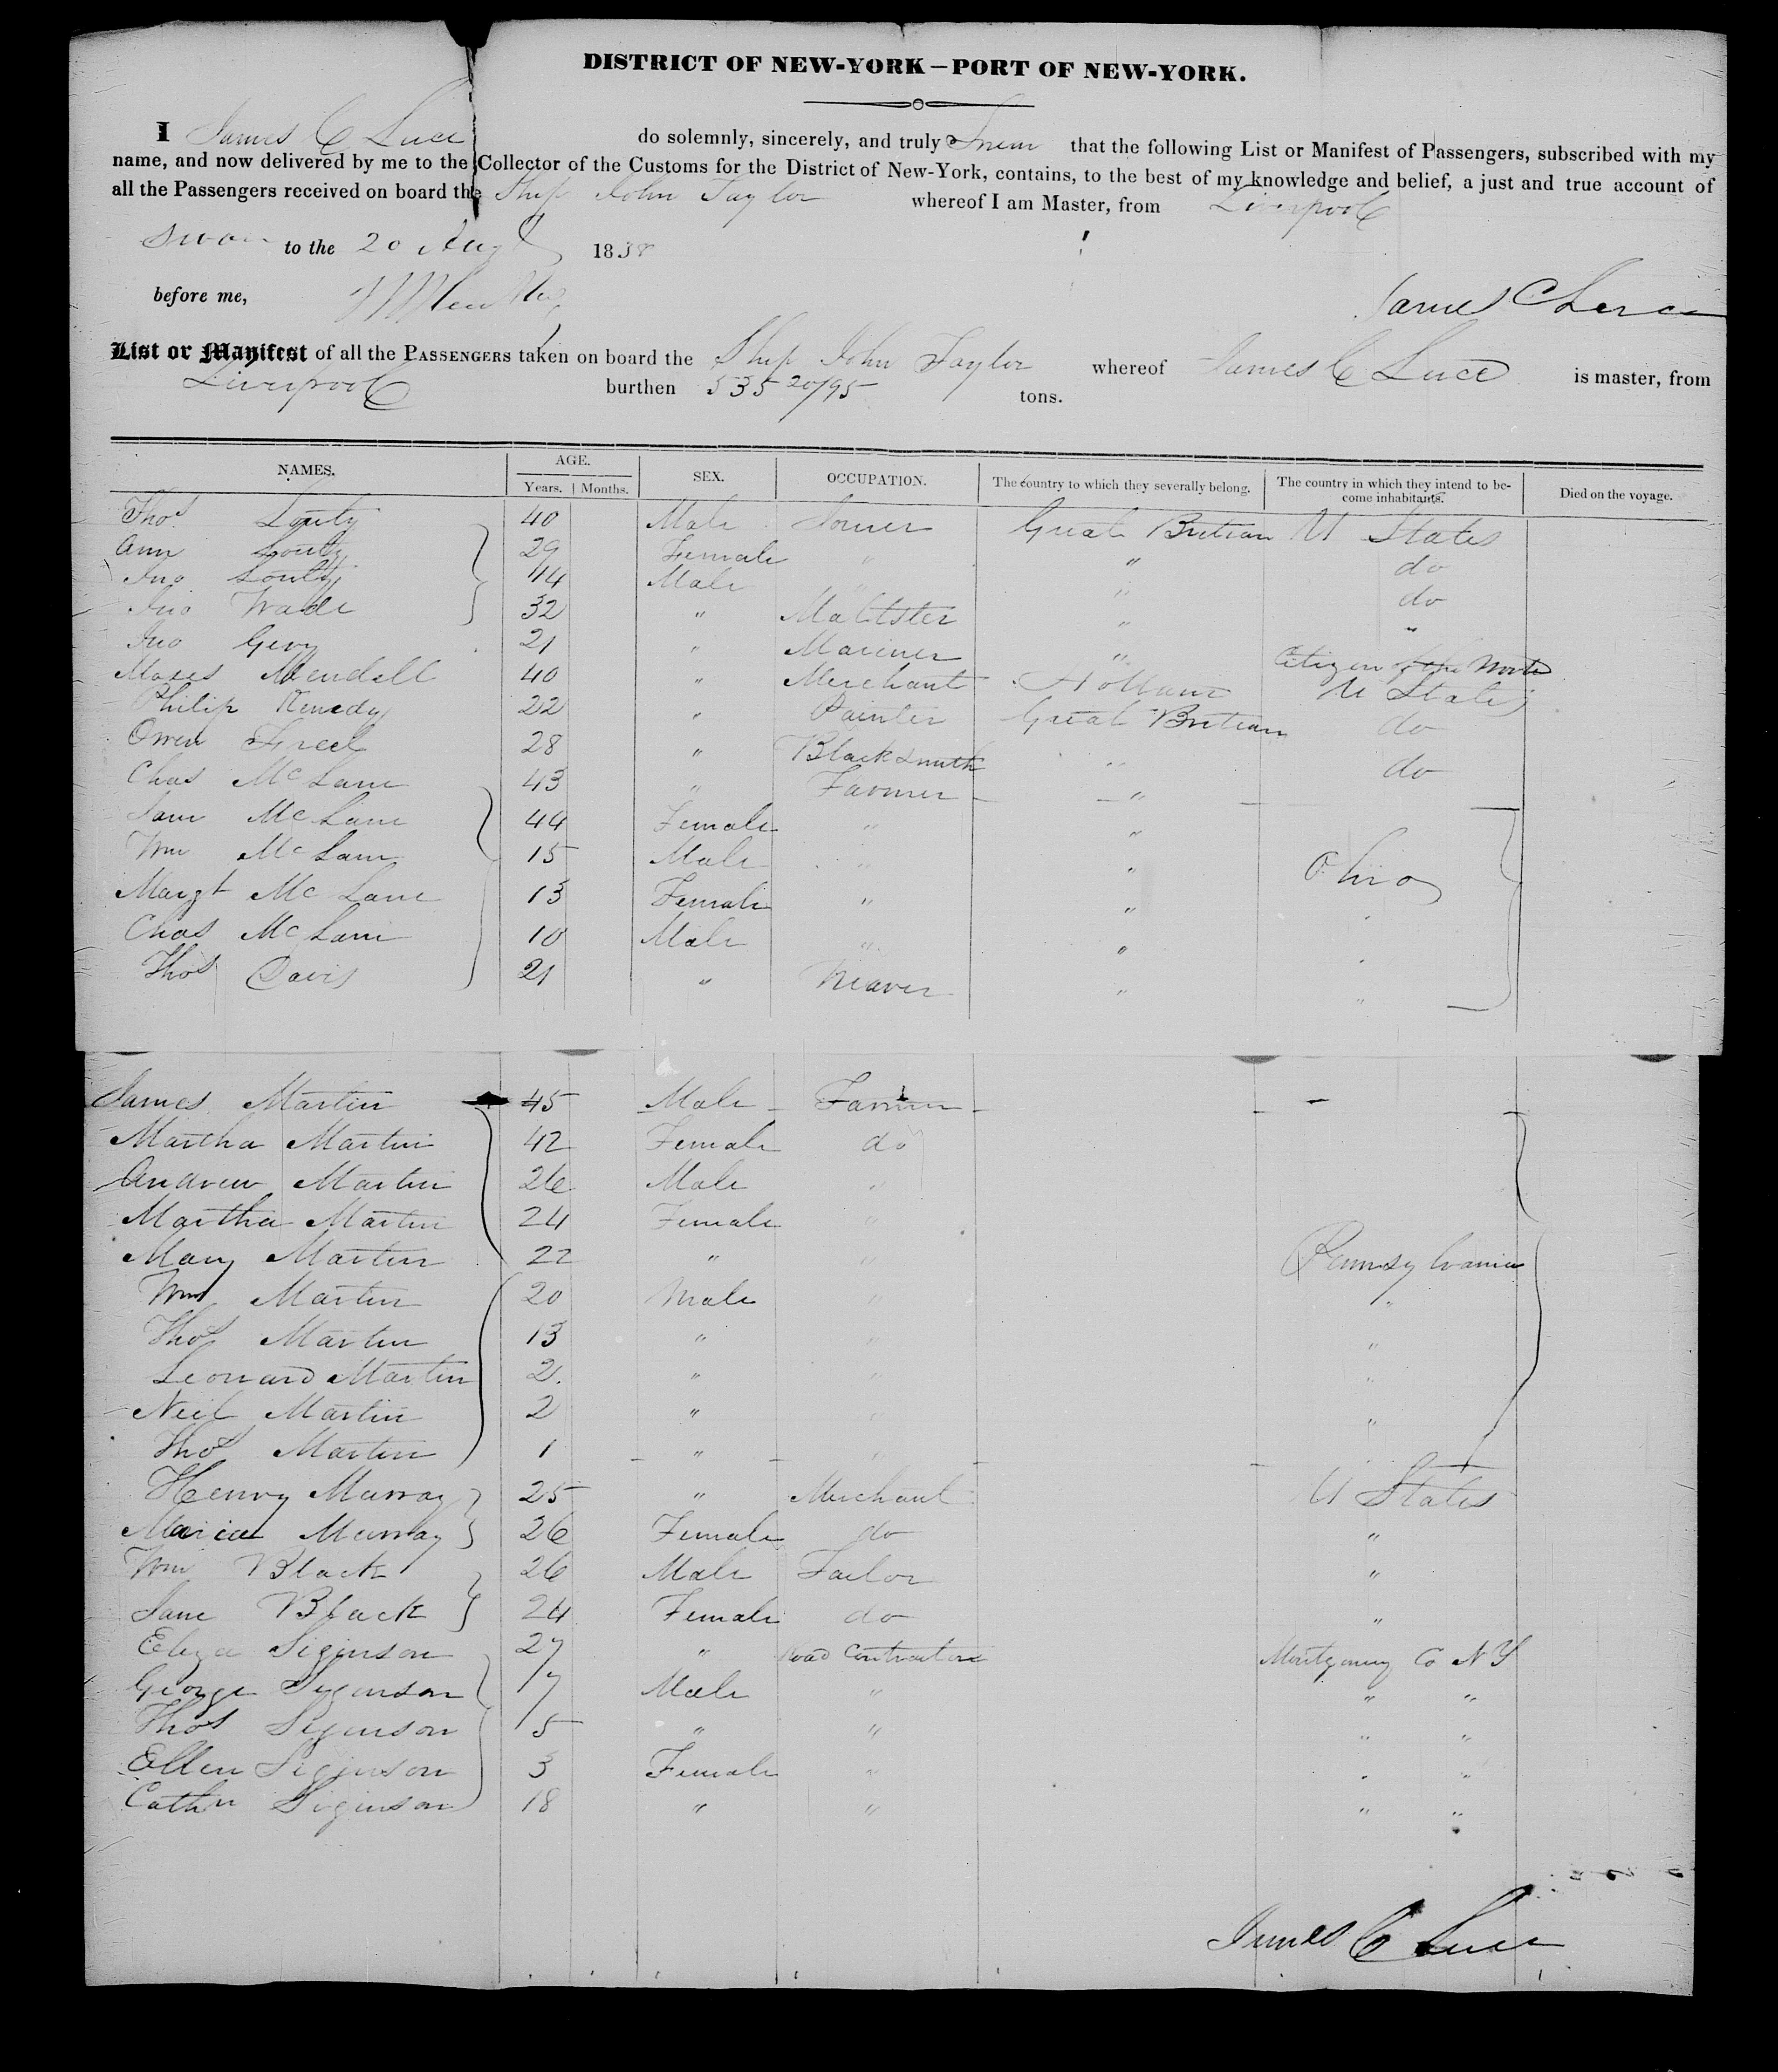 DISTRICT OF NEW-YORK—PORT OF NEW-YORK.
I James C Luce do solemnly, sincerely, and truly Swear that the following List or Manifest of Passengers, subscribed with my
name, and now delivered by me to the Collector of the Customs for the District of New-York, contains, to the best of my knowledge and belief, a just and true account of
all the Passengers received on board the Ship John Taylor whereof I am Master, from Liverpool
Sworn to the 20 Aug 1838
before me,
James C Luce
List or Manifest of all the PASSENGERS taken on board the Ship John Taylor whereof James C Luce is master, from
Liverpool burthen 535 20/95 tons.
NAMES. AGE. SEX. OCCUPATION. The country to which they severally belong. The country in which they intend to become inhabitants. Died on the voyage.
Years. Months.
Thos Louty 40 Male Great Britian U States
Ann Louty 29 Female " " do
Jno Louty 44 Male " do
Jno Wade 32 " Maltster " "
Jno Gevy 21 " Mariner " Citizen of the World
Moses Mendell 40 " Merchant Holland U States
Philip Kenedy 22 " Painter Great Britian do
Owen Freel 28 " Blacksmith " do
Chas McLane 43 " Farmer "
Jane McLane 44 Female " "
Wm McLane 15 Male " " Ohio
Margt McLane 13 Female " "
Chas McLane 10 Male " " "
Thos Davis 21 " Weaver " "
James Martin 45 Male Farmer
Martha Martin 42 Female do
Andrew Martin 26 Male "
Martha Martin 24 Female "
Mary Martin 22 " " Pennsylvania
Wm Martin 20 Male " "
Thos Martin 13 " " "
Leonard Martin 2 " " "
Neil Martin 2 " " "
Thos Martin 1 " "
Henry Murray 25 " Merchant U States
Maria Murray 26 Female do "
Wm Black 26 Male Tailor "
Jane Black 24 Female do "
Eliza Siginson 27 " Road Contractor Montgomery Co N Y
George Siginson 7 Male " " "
Thos Siginson 5 " " " "
Ellen Siginson 3 Female " " "
Cathn Siginson 18 " " " "
James C Luce